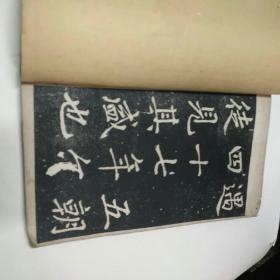 徒見其也
四十七年
遇五朝